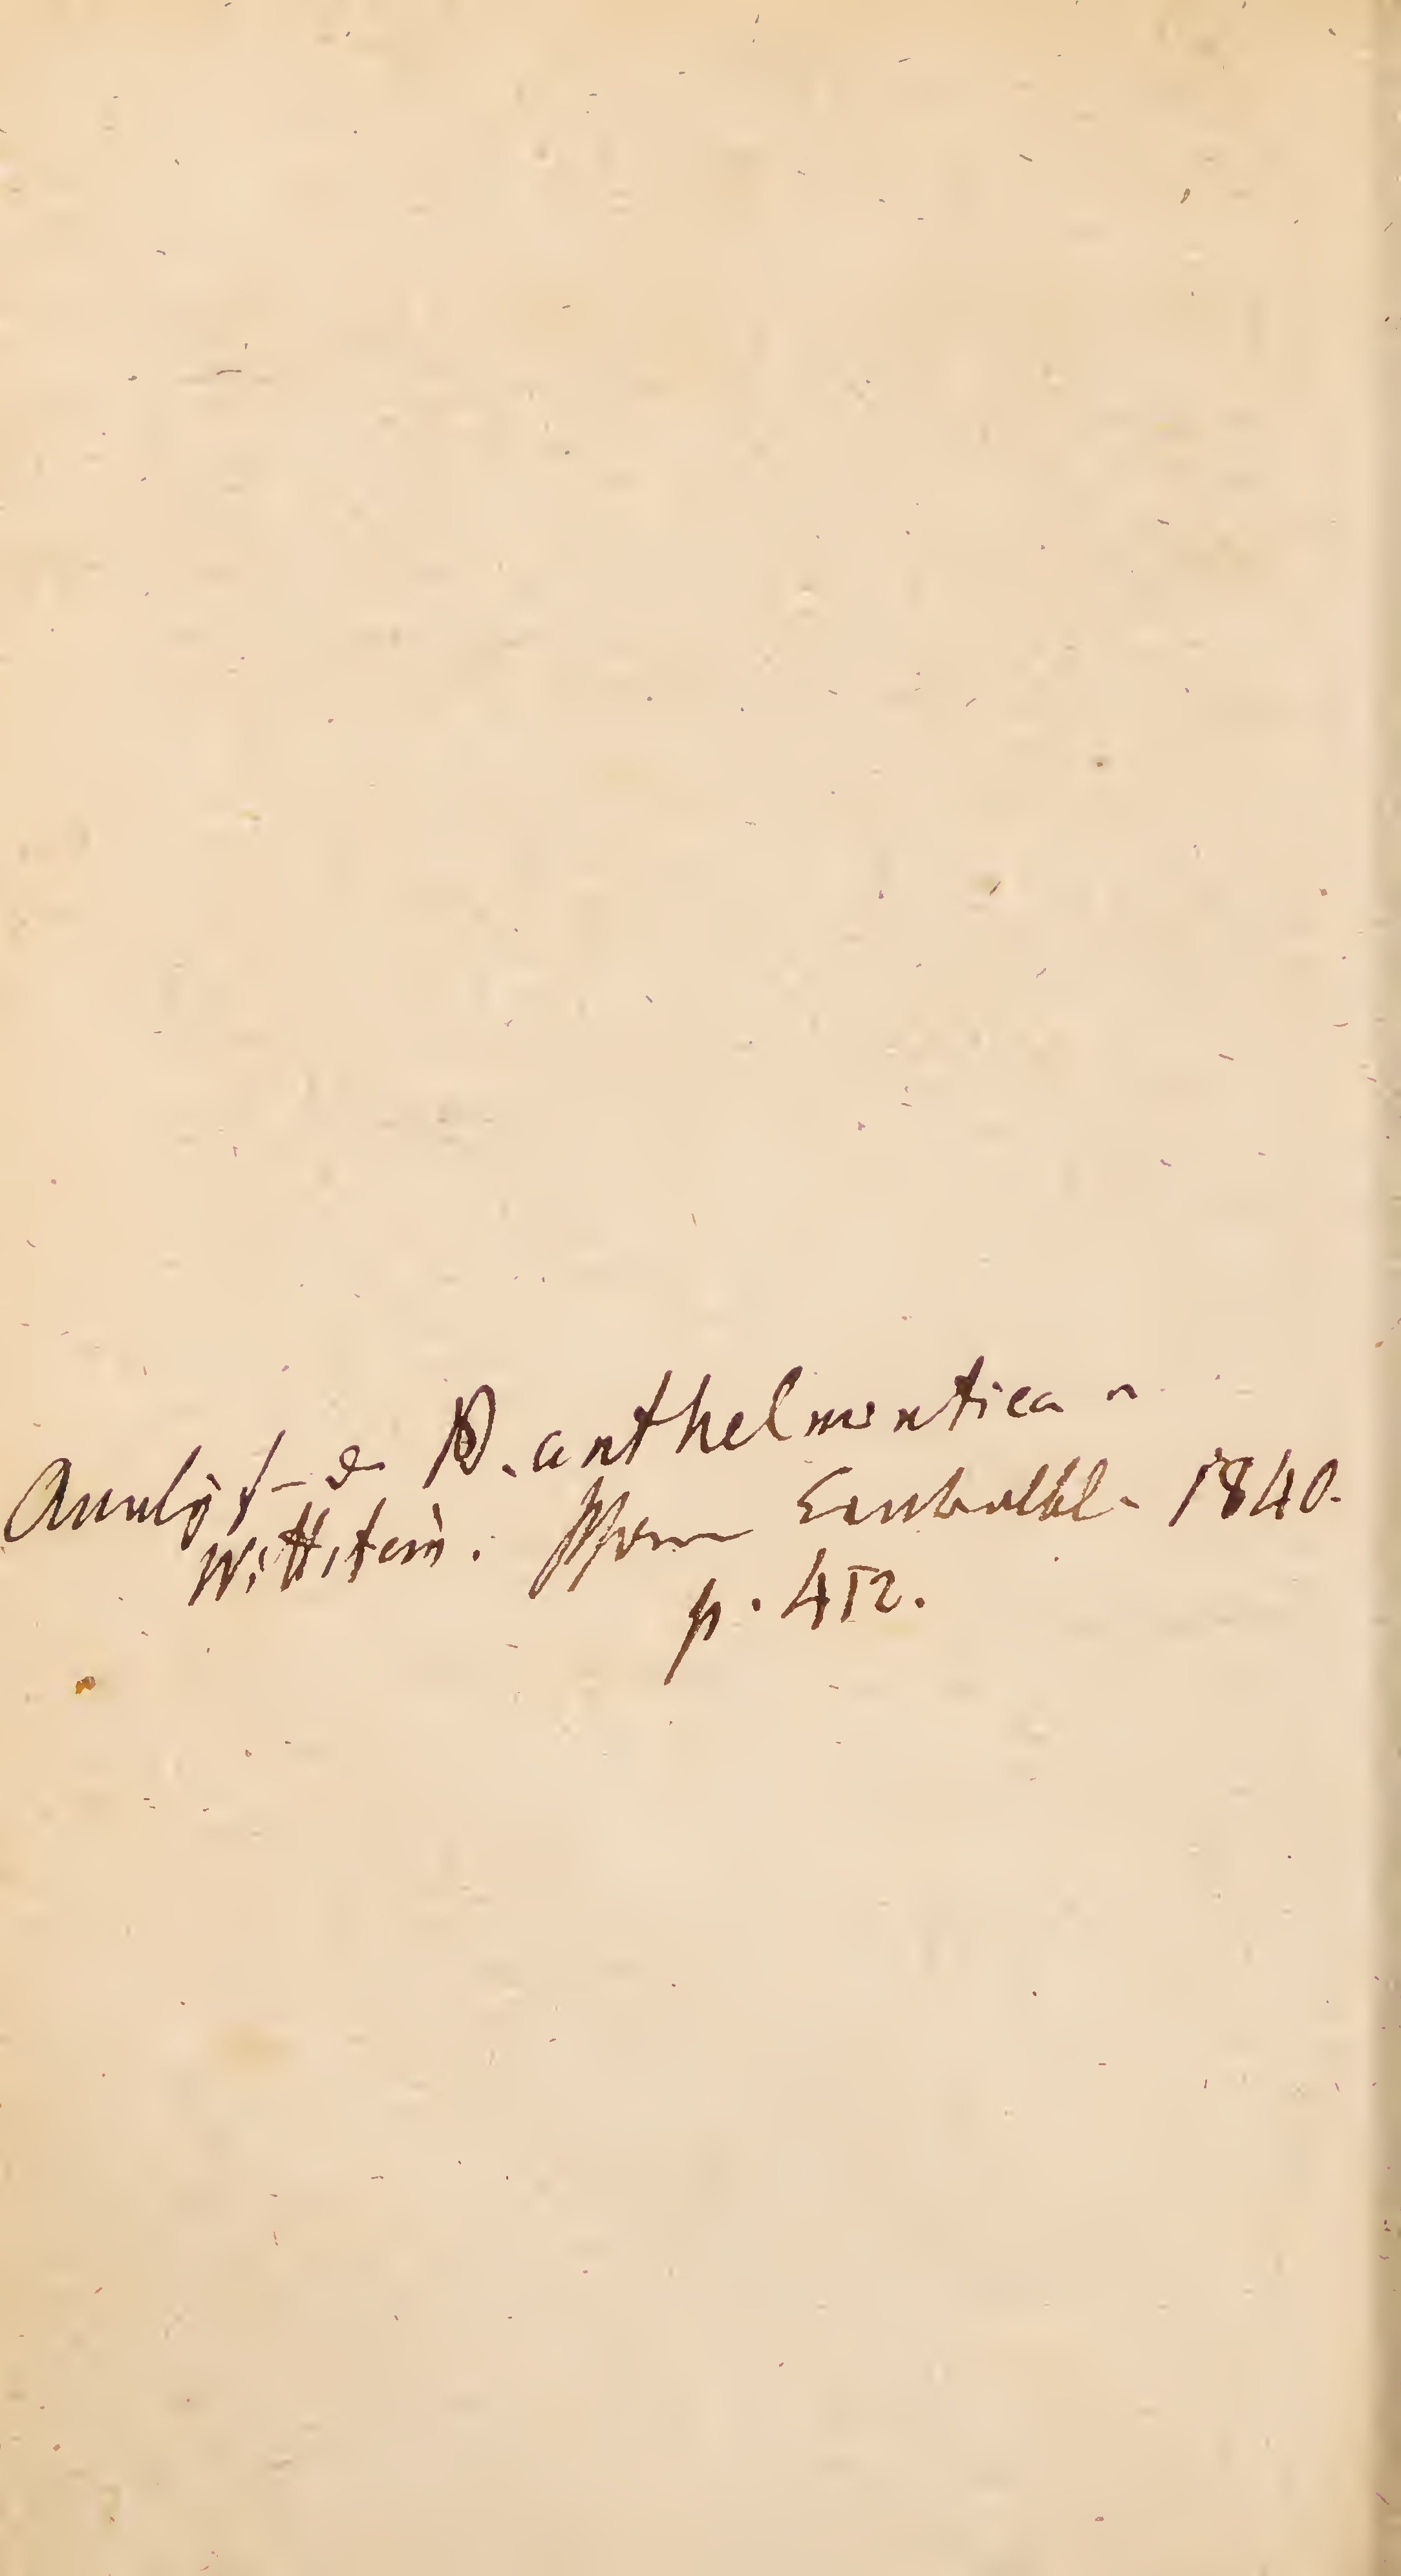 Analys d B. anthelmintica v
Wittstein. Pharm Centralbl. 1840.
p. 452.